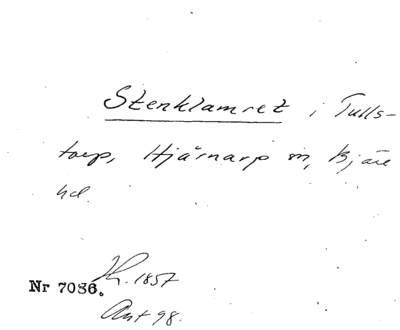 Stenklamret i Tulls-
torp, Hjärnarp sn, Bjäre
hd.
Nr 7086. K. 1857
Ant 98.